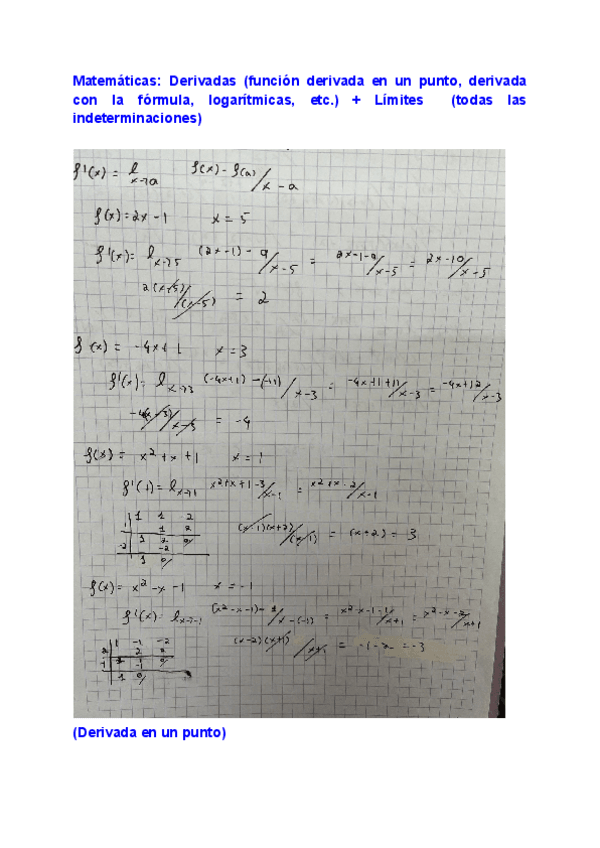 Matemáticas: Derivadas (función derivada en un punto, derivada
con la fórmula, logarítmicas, etc.) + Límites (todas las
indeterminaciones)
f'(x) = l x→a f(x) - f(a) / x - a
f(x) = 2x - 1 x = 5
f'(x) = l x→5 (2x-1) - 9 / x-5 = 2x-1-9 / x-5 = 2x-10 / x-5
2(x-5) / (x-5) = 2
f(x) = -4x + 1 x = 3
f'(x) = l x→3 (-4x+1) - (-11) / x-3 = -4x+1+11 / x-3 = -4x+12 / x-3
-4(x-3) / x-3 = -4
f(x) = x²+x+1 x = 1
f'(1) = l x→1 x²+x+1-3 / x-1 = x²+x-2 / x-1
1 1 -2
1 1 2
1 2 0
-2 -2
1 0
(x-1)(x+2) / (x-1) = (x+2) = 3
f(x) = x²-x-1 x = -1
f'(x) = l x→-1 (x²-x-1)-1 / x-(-1) = x²-x-1-1 / x+1 = x²-x-2 / x+1
1 -1 -2
2 2 2
1 1 0
-1 -1
1 0
(x-2)(x+1) / x+1 = -1-2 = -3
(Derivada en un punto)